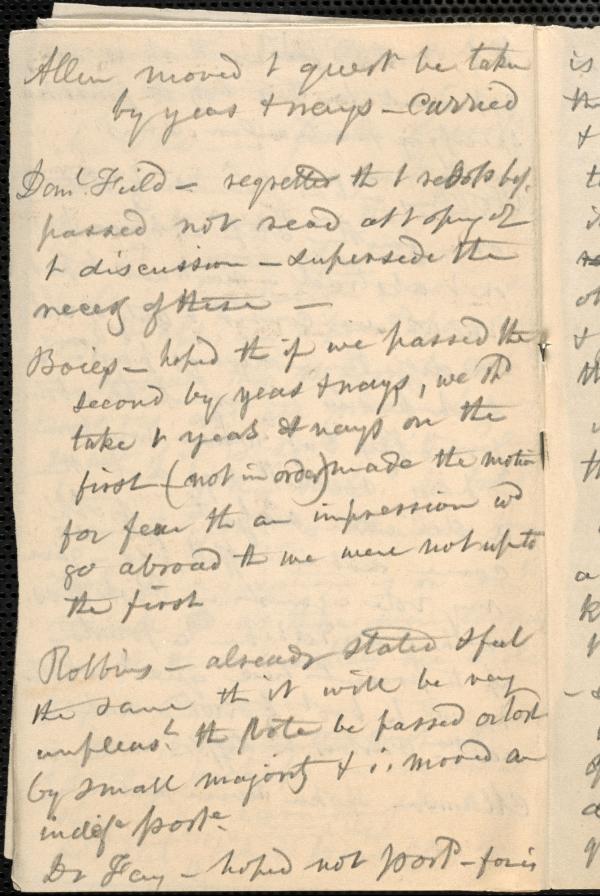 Allen moved t quest be taken
by yeas & nays – carried
Danl. Field – regretted th t
passed not read at t opng of
t discussion – supersede the
necey of these –
Boies – hoped th if we passed the
second by yeas & nays, we shd
take t yeas & nays on the
first (not in order) made the motion
for fear th an impression wd
go abroad th we were not up to
the first
Robbins – already stated & feel
the same th it will be very
unpleast. th Vote be passed or lost
by small majority & i. moved an
indefe postt.
Dr Fay – hoped not postt – for is
is
the
&